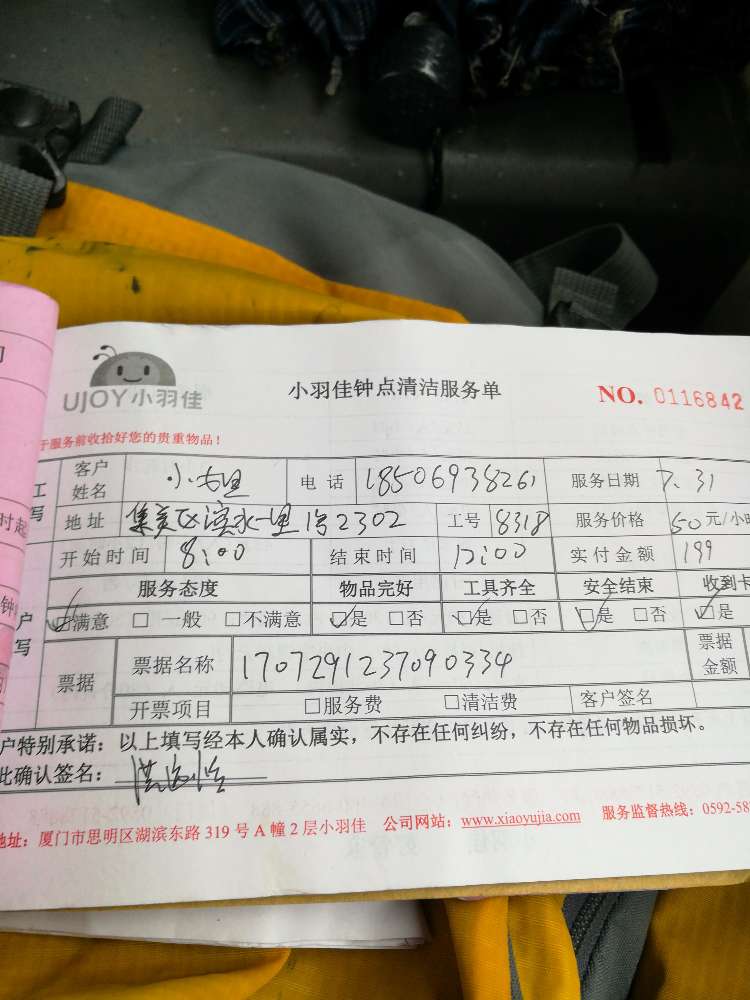 UJOY小羽佳
小羽佳钟点清洁服务单
NO. 0116842
于服务前收拾好您的贵重物品！
工 客户姓名 小 电话 18506938261 服务日期 7.31
写 地址 集美区滨水一里 2302 工号 8318 服务价格 50元/小时
开始时间 8:00 结束时间 12:00 实付金额 199
服务态度 物品完好 工具齐全 安全结束 收到卡
户写 ☑满意 □ 一般 □不满意 ☑是 □否 ☑是 □否 ☑是 □否 ☑是
票据 票据名称 1707291237090334 票据金额
开票项目 □服务费 □清洁费 客户签名
户特别承诺：以上填写经本人确认属实，不存在任何纠纷，不存在任何物品损坏。
此确认签名：
地址：厦门市思明区湖滨东路 319 号 A 幢 2 层小羽佳 公司网站：www.xiaoyujia.com 服务监督热线：0592-58
时起
钟